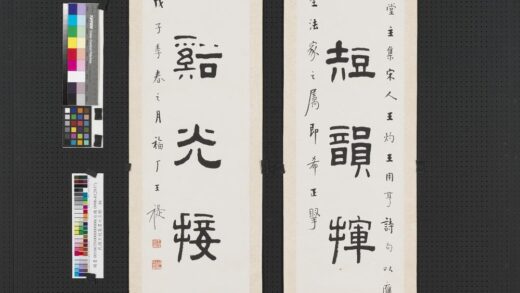 堂主集宋人王灼王用亨詩句以
短韻揮
生法家之屬即希正
谿光接
戊子季春之月福厂王禔